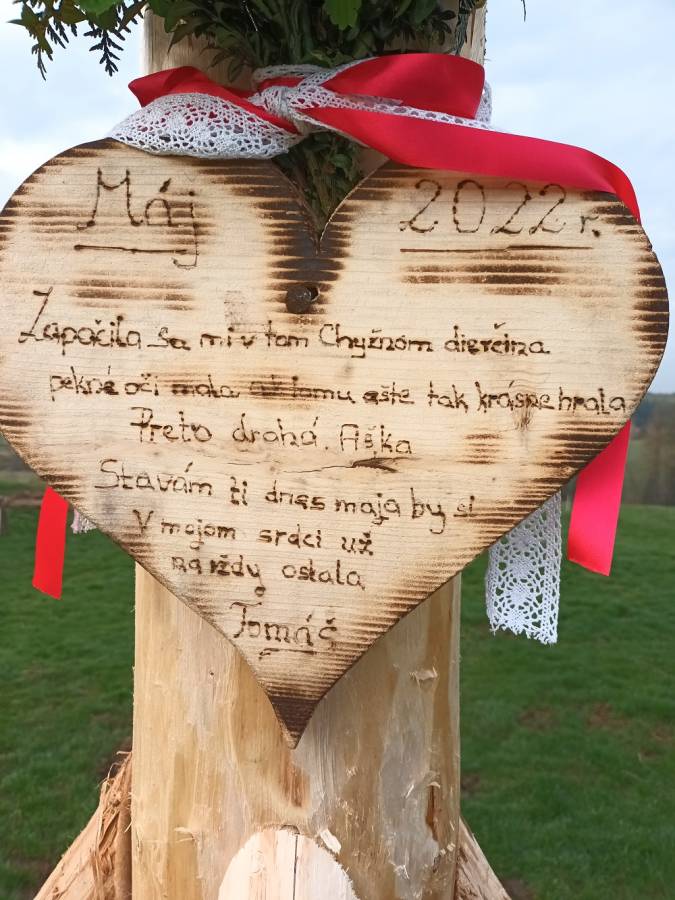 Máj 2022 r.
Zapáčila sa mi v tom Chyžnom dierčina
pekné oči mala až tomu ešte tak krásne hrala
Preto drahá Aška
Stavám ti dnes maja by si
V mojom srdci už
navždy ostala
Tomáš